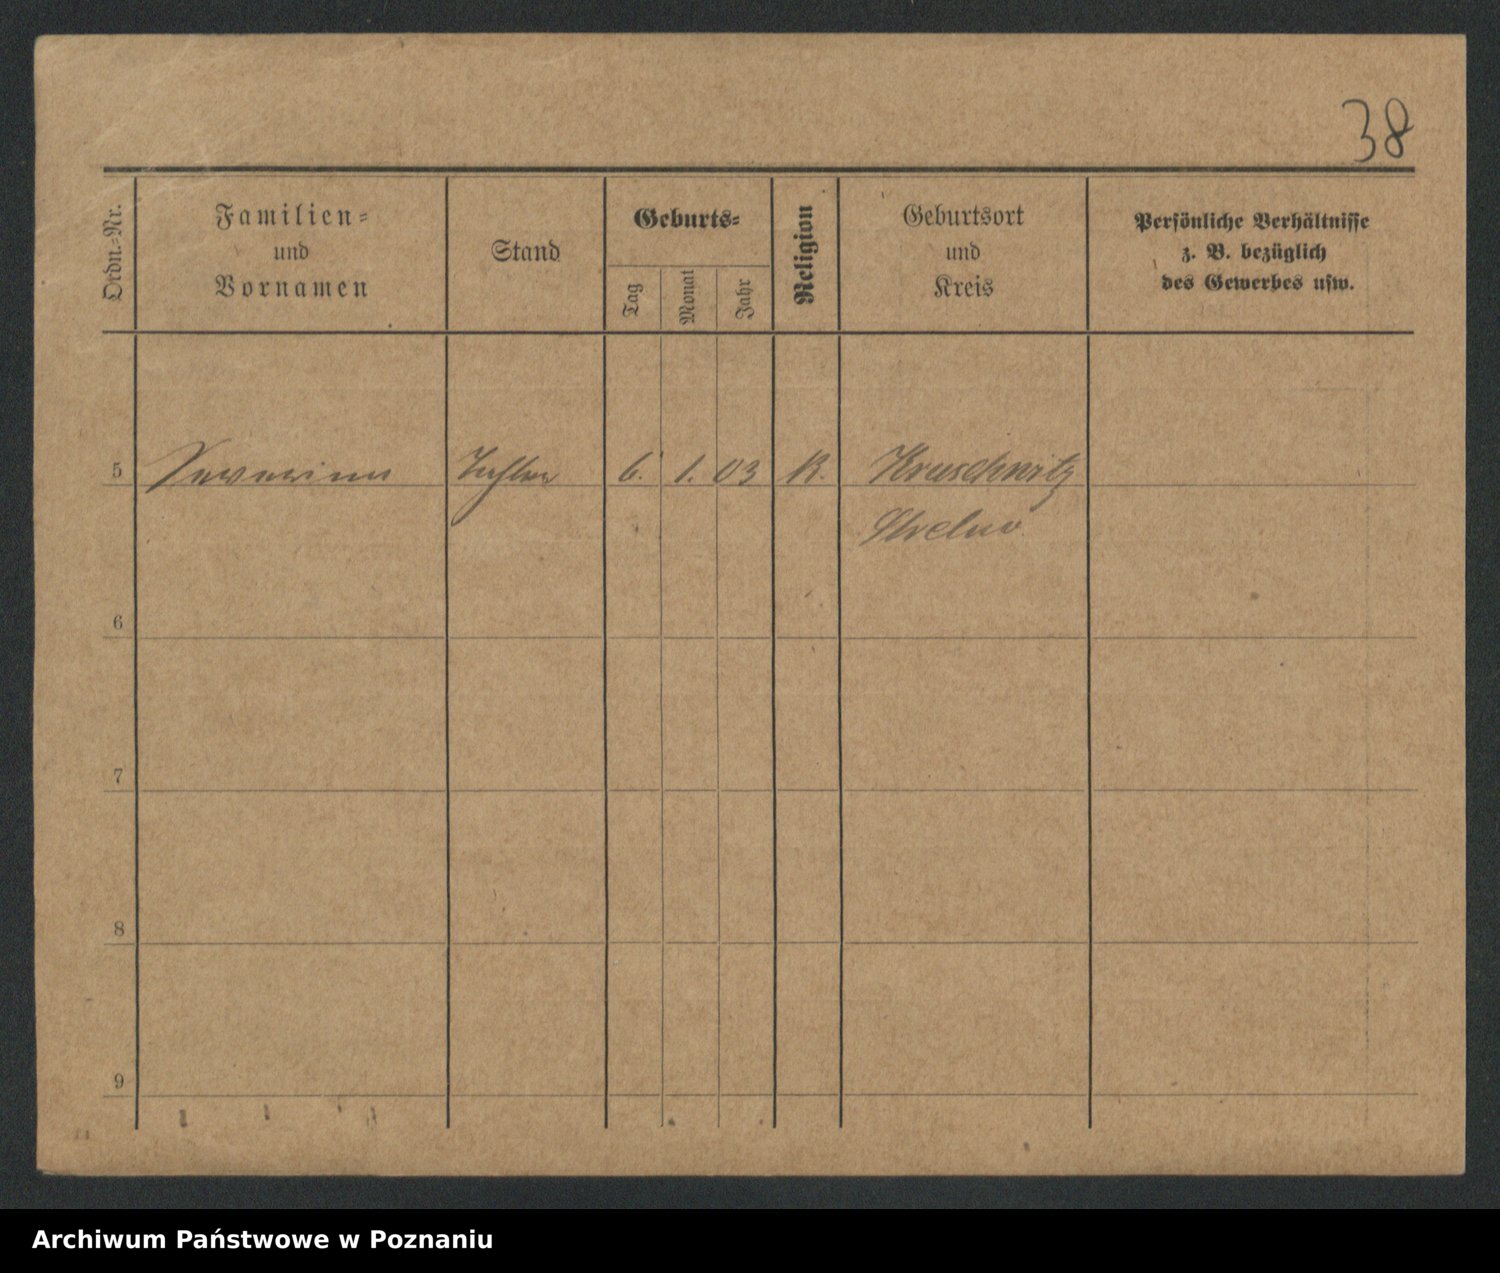 38
Ordn.-Nr.
Familien-
und
Vornamen
Stand
Geburts-
Tag
Monat
Jahr
Religion
Geburtsort
und
Kreis
Persönliche Verhältnisse
z. B. bezüglich
des Gewerbes usw.
5 Severina 6. 1. 03 K. Kruschwitz
Strelno
6
7
8
9
Archiwum Państwowe w Poznaniu